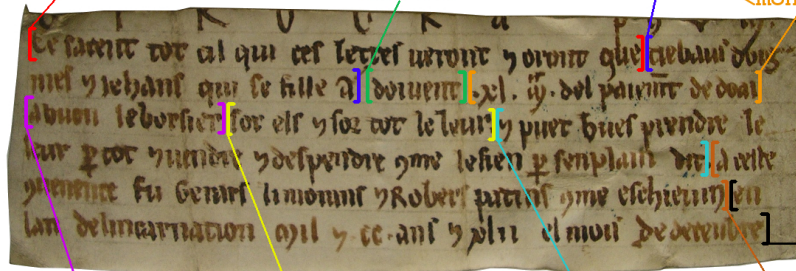 Ce sacent tot cil qui ces letres veront ⁊ oront que tiebaus doig
mes ⁊ iehans qui se fille a doivent .xl. del paiemt de doai
a huon le borsier sor els ⁊ sor tot le leur ⁊ puet hues prendre le
leur p tot ⁊ vendre ⁊ despendre 9me le sien p sen plain dit a ceste
9venence fu Gerars li monnins ⁊ Robers patins 9me eschievin en
lan del incarnation mil ⁊ cc. ans ⁊ xlii el mois de decenbre